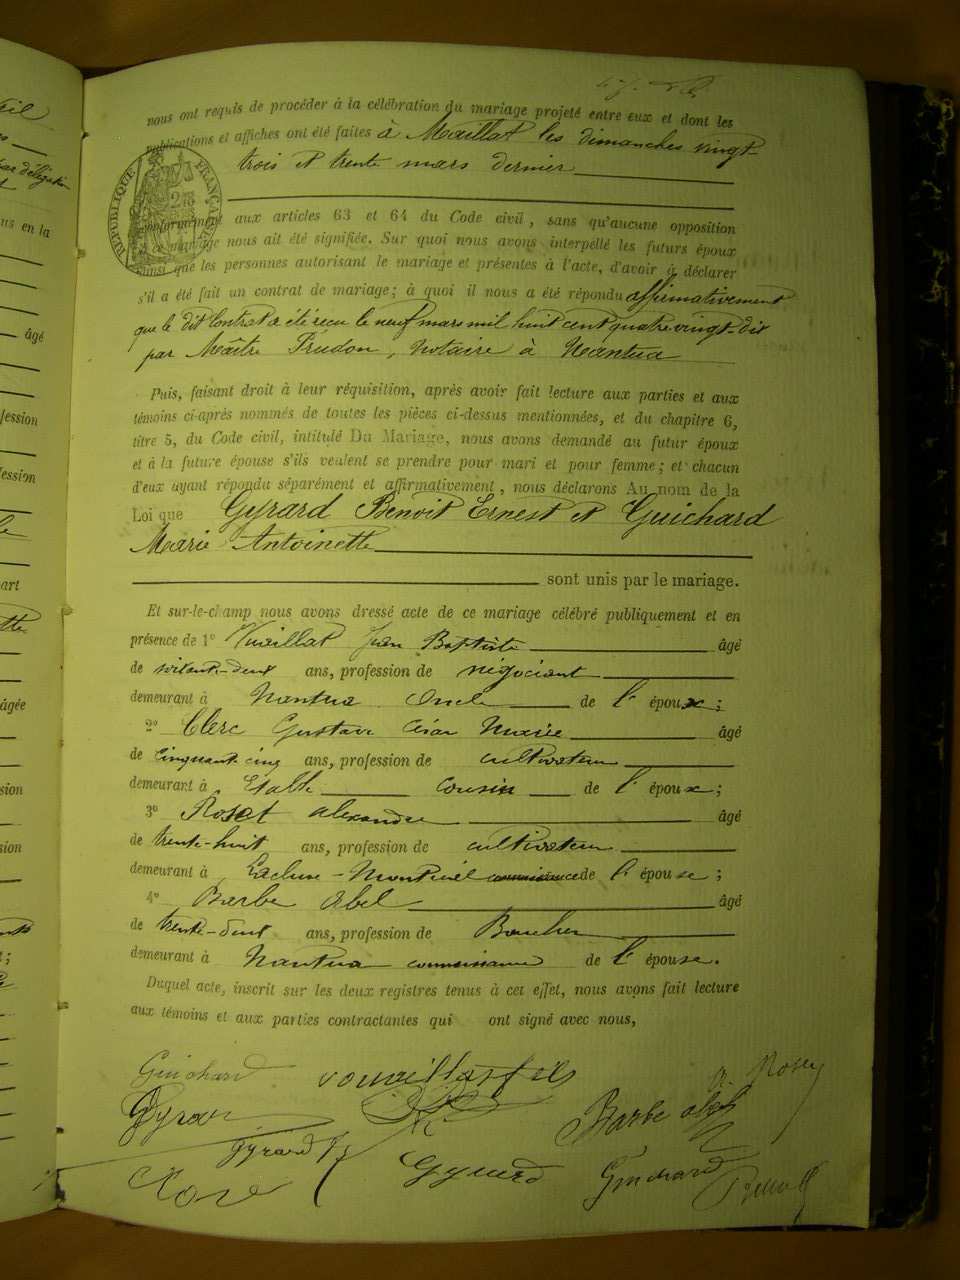 nous ont requis de procéder à la célébration du mariage projeté entre eux et dont les
publications et affiches ont été faites à Maillat les dimanches vingt-
trois et trente mars dernier
RÉPUBLIQUE FRANÇAISE
conformément aux articles 63 et 64 du Code civil, sans qu'aucune opposition
à ce mariage nous ait été signifiée. Sur quoi nous avons interpellé les futurs époux
ainsi que les personnes autorisant le mariage et présentes à l'acte, d'avoir à déclarer
s'il a été fait un contrat de mariage; à quoi il nous a été répondu affirmativement
que le dit Contrat a été reçu le neuf mars mil huit cent quatre vingt-dix
par Maître Prudon, Notaire à Nantua
Puis, faisant droit à leur réquisition, après avoir fait lecture aux parties et aux
témoins ci-après nommés de toutes les pièces ci-dessus mentionnées, et du chapitre 6,
titre 5, du Code civil, intitulé Du Mariage, nous avons demandé au futur époux
et à la future épouse s'ils veulent se prendre pour mari et pour femme; et chacun
d'eux ayant répondu séparément et affirmativement, nous déclarons Au nom de la
Loi que Gyrard Benoit Ernest et Guichard
Marie Antoinette
sont unis par le mariage.
Et sur-le-champ nous avons dressé acte de ce mariage célébré publiquement et en
présence de 1° Vuaillat Jean Baptiste âgé
de soixante-deux ans, profession de négociant
demeurant à Nantua Oncle de l'époux;
2° Clerc Gustave César âgé
de cinquante-cinq ans, profession de cultivateur
demeurant à Etable cousin de l'époux;
3° Roset alexandre âgé
de trente-huit ans, profession de cultivateur
demeurant à Lacluse-Montréal de l'épouse;
4° Barbe Abel âgé
de trente-deux ans, profession de Boucher
demeurant à Nantua connaissance de l'épouse.
Duquel acte, inscrit sur les deux registres tenus à cet effet, nous avons fait lecture
aux témoins et aux parties contractantes qui ont signé avec nous,
Guichard
Gyrard Barbe abel
gyrard
Gyrard Guichard